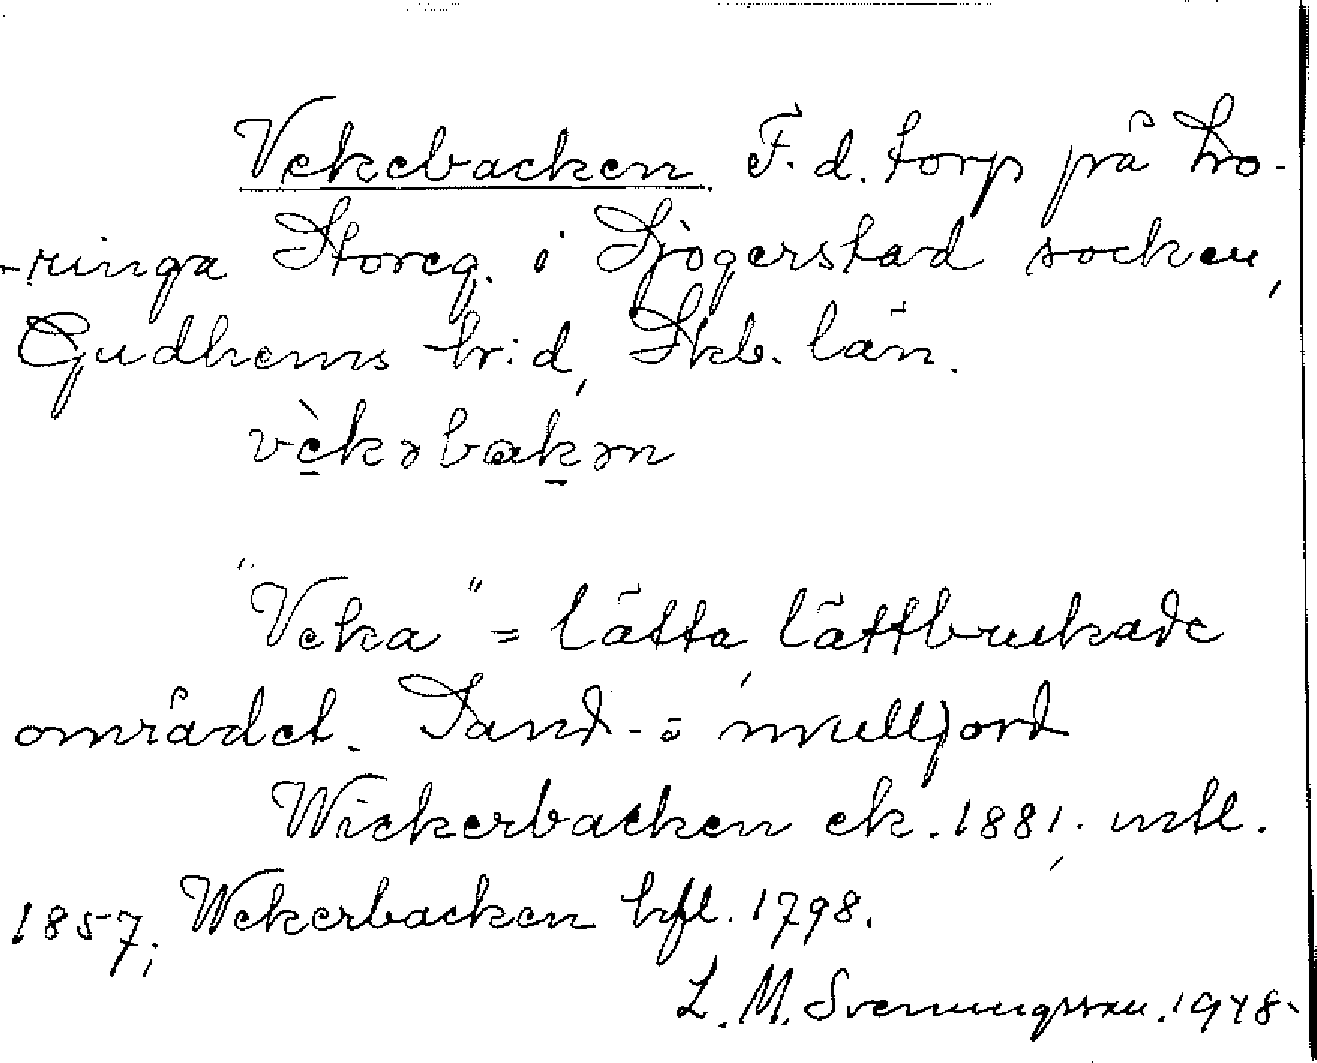 Vekebacken. F. d. torp på Bro-
-ringa Storeg. i Sjögerstad socken,
Gudhems hr:d, Skb. län.
vèkəbakən
"Veka" = lätta, lättbrukade
området. Sand- o mulljord
Wickerbacken ek. 1881, mtl.
1857; Wekerbacken hfl. 1798.
L. M. Svenungsson. 1948.